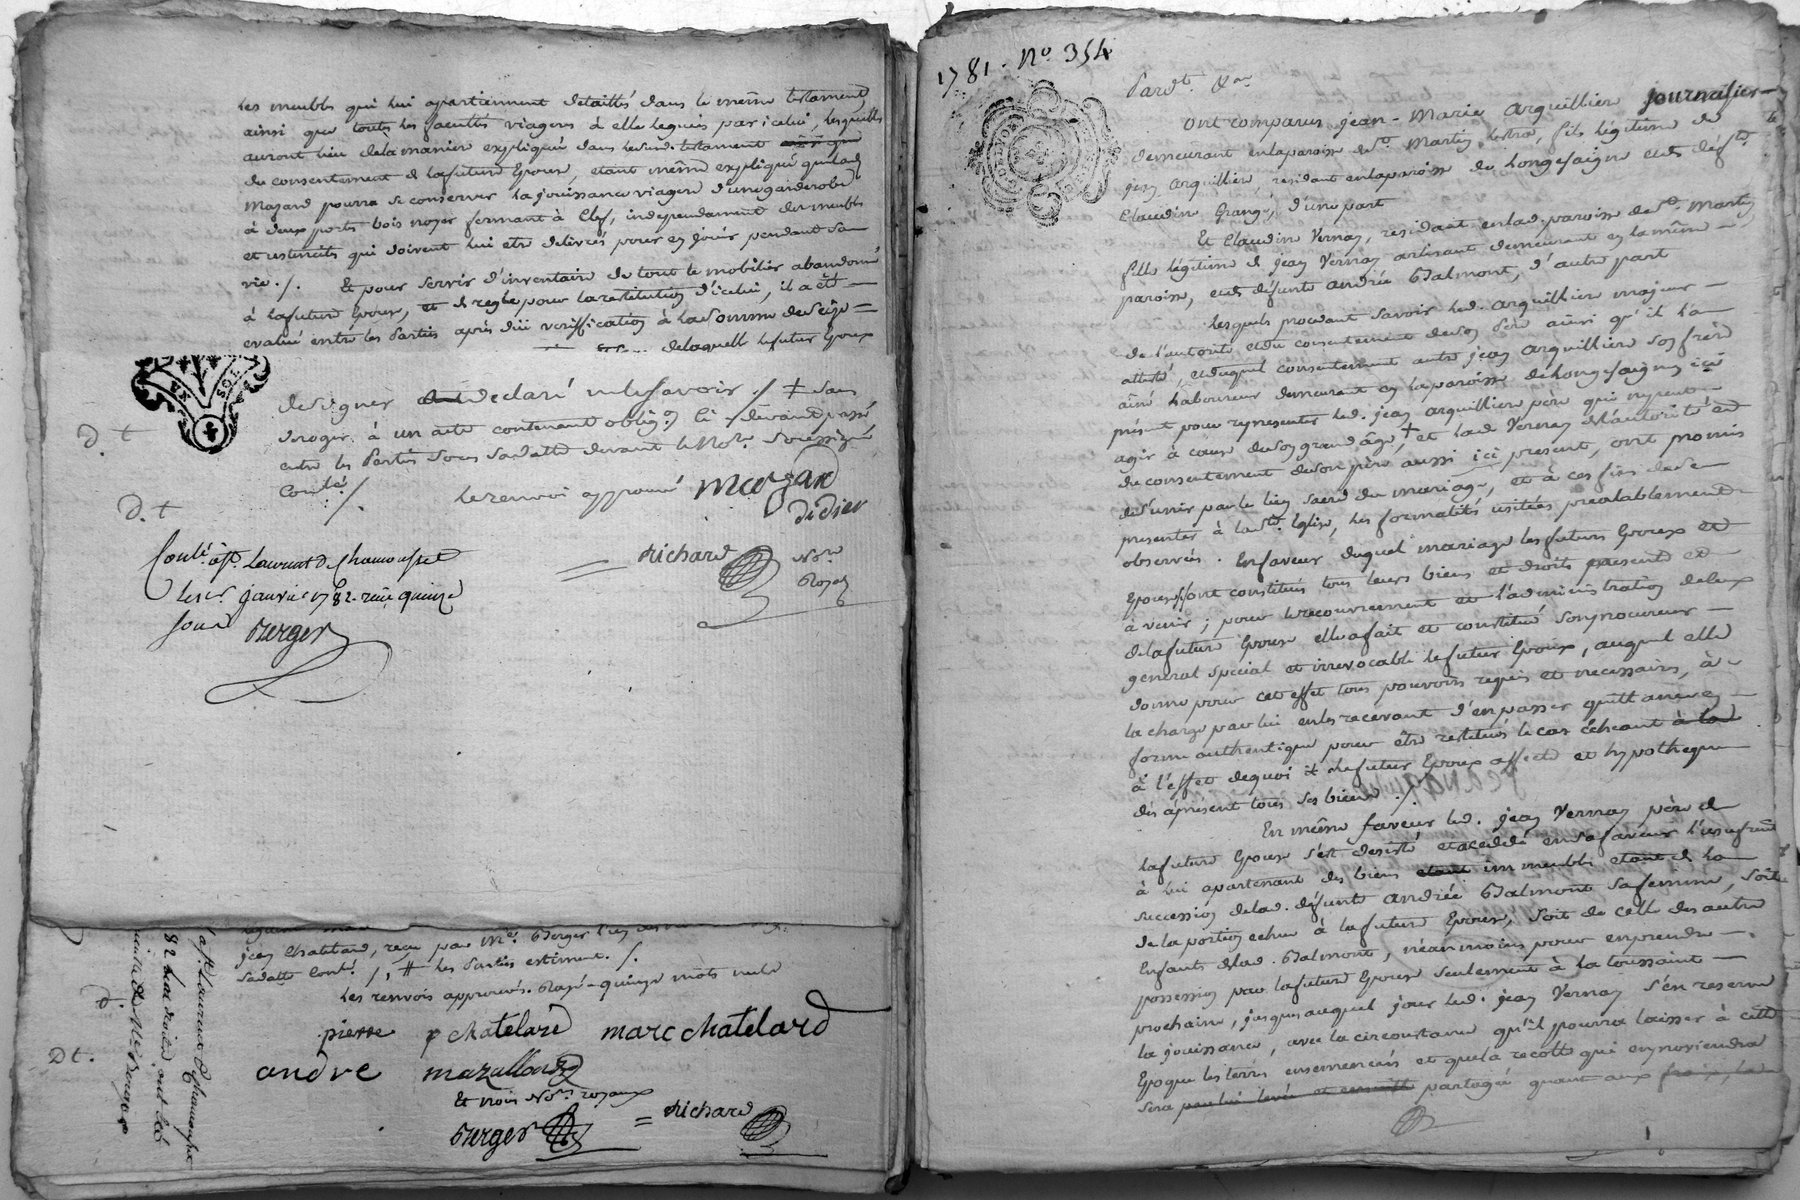 les meubles qui lui apartiennent detaillés dans le même testament
ainsi que toutes les facultés viageres à elle leguées par icelui, lesquelles
auront lieu de la maniere expliquée dans led. testament que
du consentement de la future Epouse, etant même expliqué que lad.
Mazard pourra se conserver la jouissance viagere d'une garderobe
à deux portes bois noyer fermant à clef, independament des meubles
et ustenciles qui doivent lui etre delivrés pour en jouir pendant sa
vie ./. Et pour servir d'inventaire de tout le mobilier abandonné
à la future Epouse, et de regle pour la restitution d'icelui, il a été
evalué entre les Parties après düe veriffication à la somme de seize
de laquelle le futur Epoux
de signer declaré ne le savoir ./. + sans
deroger à un acte contenant oblig.on ci-devant passé
entre les Parties sous sa datte devant le No.re soussigné
Conlé ./.
le renvoi approuvé Mazard
didier
D. t
D. t
Conlé à St. Laurent de Chamousset
le 1er. janvier 1782. reçu quinze
sous Berger
= Richard No.re
Royal
jean Chatelard, reçu par Me. Berger l'un des
Sadatte Conlé ./. # les Parties estiment ./.
Les renvois approuvés. Rayé quinze mots nuls
pierre p chatelard marc chatelard
andré mazallon
Et nous No.res royaux
Berger = Richard
Dt.
à St. Laurent de Chamousset
1781. No 354
Pard.t &a
Ont comparus jean-Marie arquillier journalier
demeurant en la paroisse de St. Martin Lestra, fils légitime de
jean arquillier, residant en la paroisse de Longesaigne et de déf.te
Claudine Grange, d'une part
Et Claudine Vernay, residant en lad. paroisse de St. Martin
fille légitime de jean Vernay artisant demeurant en la même
paroisse, et de défunte andrée Balmont, d'autre part
Lesquels procedant savoir led. arquillier majeur
de l'autorité et du consentement de son Père ainsi qu'il l'a
attesté, et duquel consentement autre jean arquillier son frère
ainé Laboureur demeurant en la paroisse de Longesaigne ici
présent pour representer led. jean arquillier père qui ne peut
agir à cause de son grand âge, + et lad. Vernay de l'autorité et
du consentement de son père aussi ici present, ont promis
de s'unir par le lien sacré du mariage, et à ces fins de se
presenter à la Ste. Eglise, les formalités usitées préalablement
observées. En faveur duquel mariage les futurs Epoux et
Epouse se sont constitués tous leurs biens et droits présents et
à venir ; pour le recouvrement et l'administration de ceux
de la future Epouse elle a fait et constitué son procureur
general special et irrevocable le futur Epoux, auquel elle
donne pour cet effet tous pouvoirs requis et necessaires, à
la charge par lui en les recevant d'en passer quittance en
forme authentique pour être restitués le cas écheant à la
à l'effet de quoi # le futur Epoux affecte et hypotheque
dès àprésent tous ses biens ./.
En même faveur led. jean Vernay père de
la future Epouse s'est desisté et a cedé en sa faveur l'usufruit
à lui apartenant des biens etant immeubles etant de la
succession de lad. défunte andrée Balmont sa femme, soit
de la portion echue à la future Epouse, soit de celle des autres
Enfants de lad. Balmont, néanmoins pour en prendre
possession par la future Epouse seulement à la toussaint
prochaine, jusques auquel jour led. jean Vernay s'en reserve
la jouissance, avec la circonstance qu'il pourra laisser à cette
Epoque les terres ensemencées et que la recolte qui en proviendra
sera par lui levée et partagée quant aux